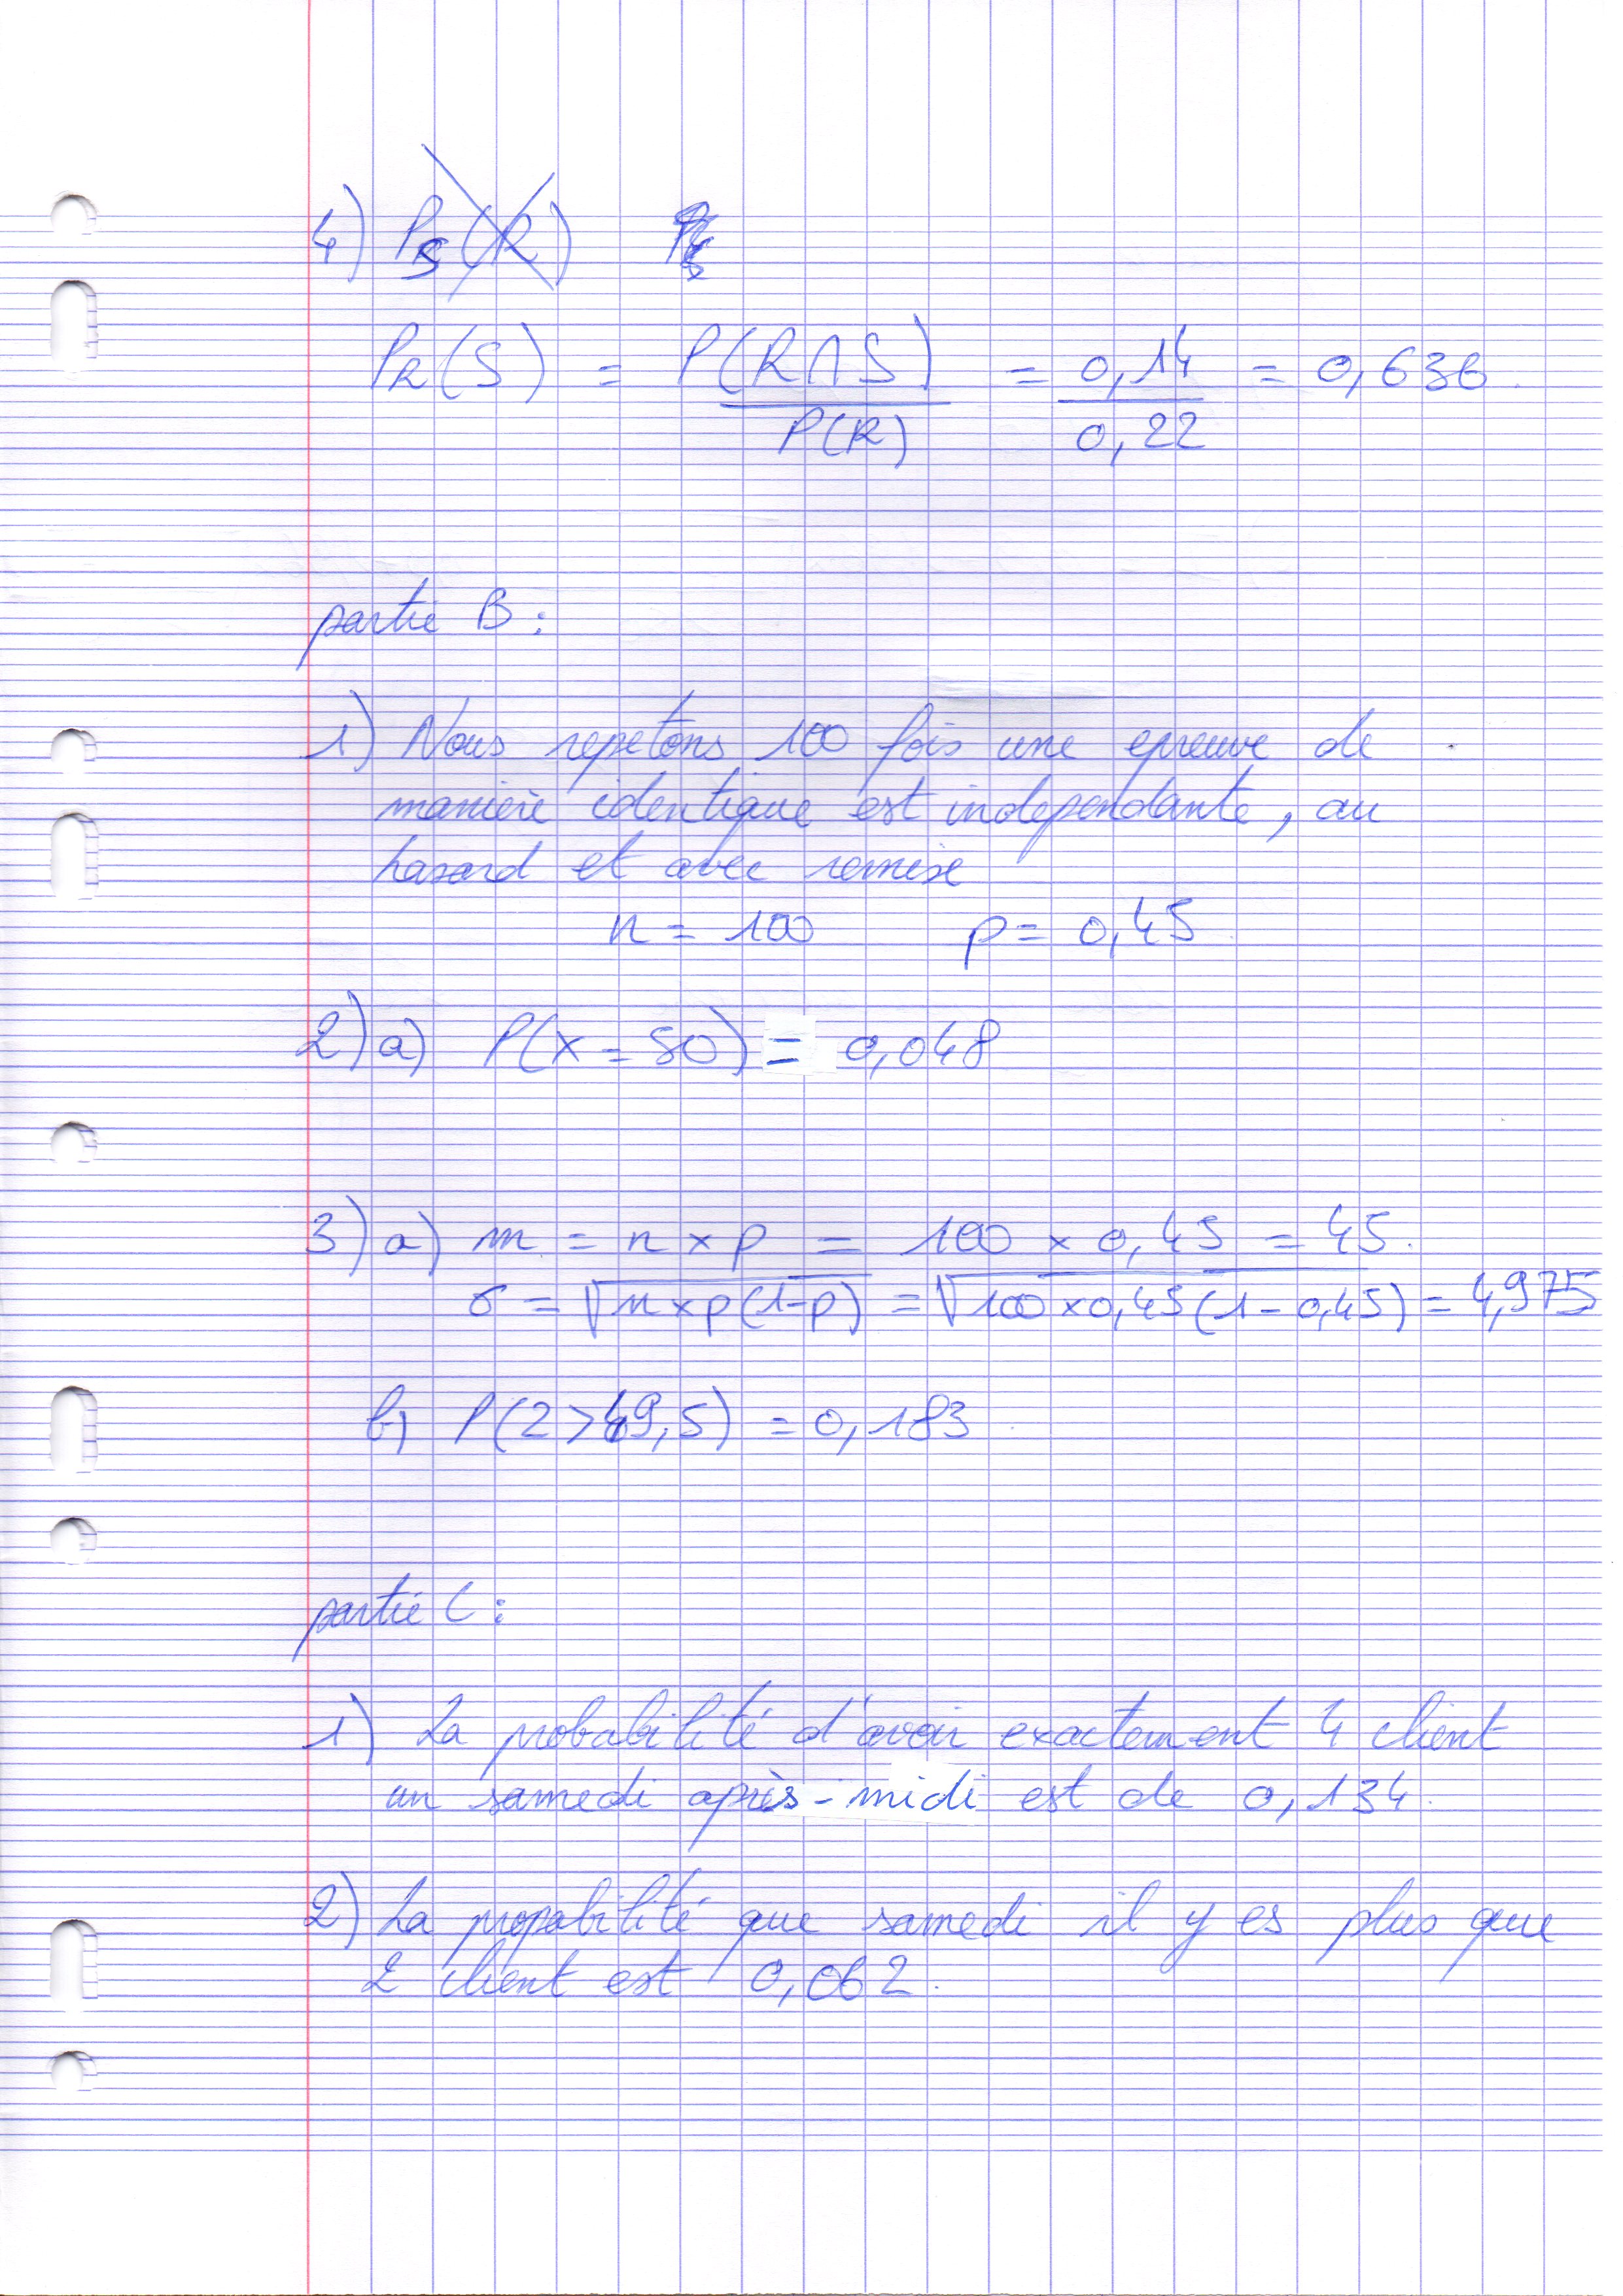 4) PS(R)
PR(S) = P(R∩S) / P(R) = 0,14 / 0,22 = 0,636.
partie B :
1) Nous repetons 100 fois une epreuve de
manière identique est independante, au
hasard et avec remise
n = 100 p = 0,45
2) a) P(X = 50) = 0,048
3) a) m = n × p = 100 × 0,45 = 45.
σ = √n×p(1-p) = √100×0,45(1-0,45) = 4,975
b) P(Z>49,5) = 0,183
partie C :
1) La probabilité d'avoir exactement 4 client
un samedi après-midi est de 0,134.
2) La propabilité que samedi il y es plus que
2 client est 0,062.